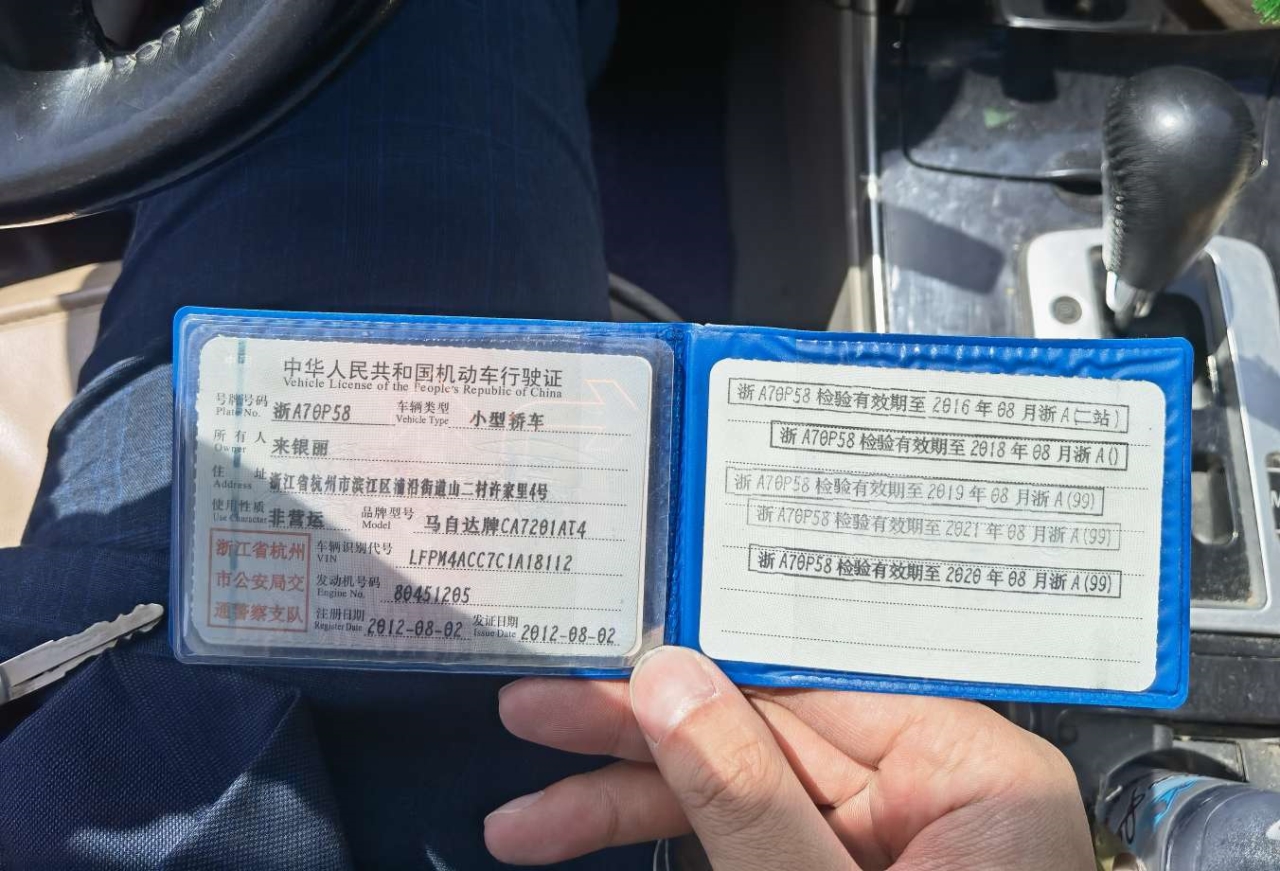 中华人民共和国机动车行驶证
Vehicle License of the People's Republic of China
号牌号码 浙A70P58 车辆类型 小型轿车
Plate No. Vehicle Type
所有人 来银丽
Owner
住址 浙江省杭州市滨江区浦沿街道山二村许家里4号
Address
使用性质 非营运 品牌型号 马自达牌CA7201AT4
Use Character Model
浙江省杭州
市公安局交
通警察支队
车辆识别代号 LFPM4ACC7C1A18112
VIN
发动机号码 80451205
Engine No.
注册日期 2012-08-02 发证日期 2012-08-02
Register Date Issue Date
浙A70P58检验有效期至2016年08月浙A(二站)
浙A70P58检验有效期至2018年08月浙A()
浙A70P58检验有效期至2019年08月浙A(99)
浙A70P58检验有效期至2021年08月浙A(99)
浙A70P58检验有效期至2020年08月浙A(99)